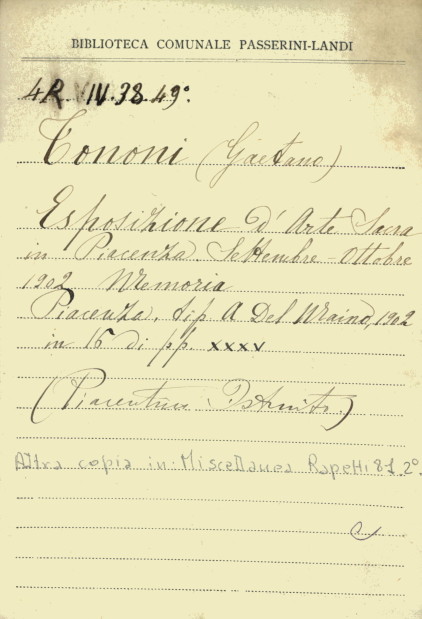 BIBLIOTECA COMUNALE PASSERINI-LANDI
4R VIV.38 49°.
Tononi (Gaetano)
Esposizione d'Arte Sacra
in Piacenza. Settembre - Ottobre
1902 Memoria
Piacenza. tip. A Del Maino, 1902
in 16 di pp. XXXV
(Piacentina
Altra copia in: Miscellanea Rapetti 81.2°.